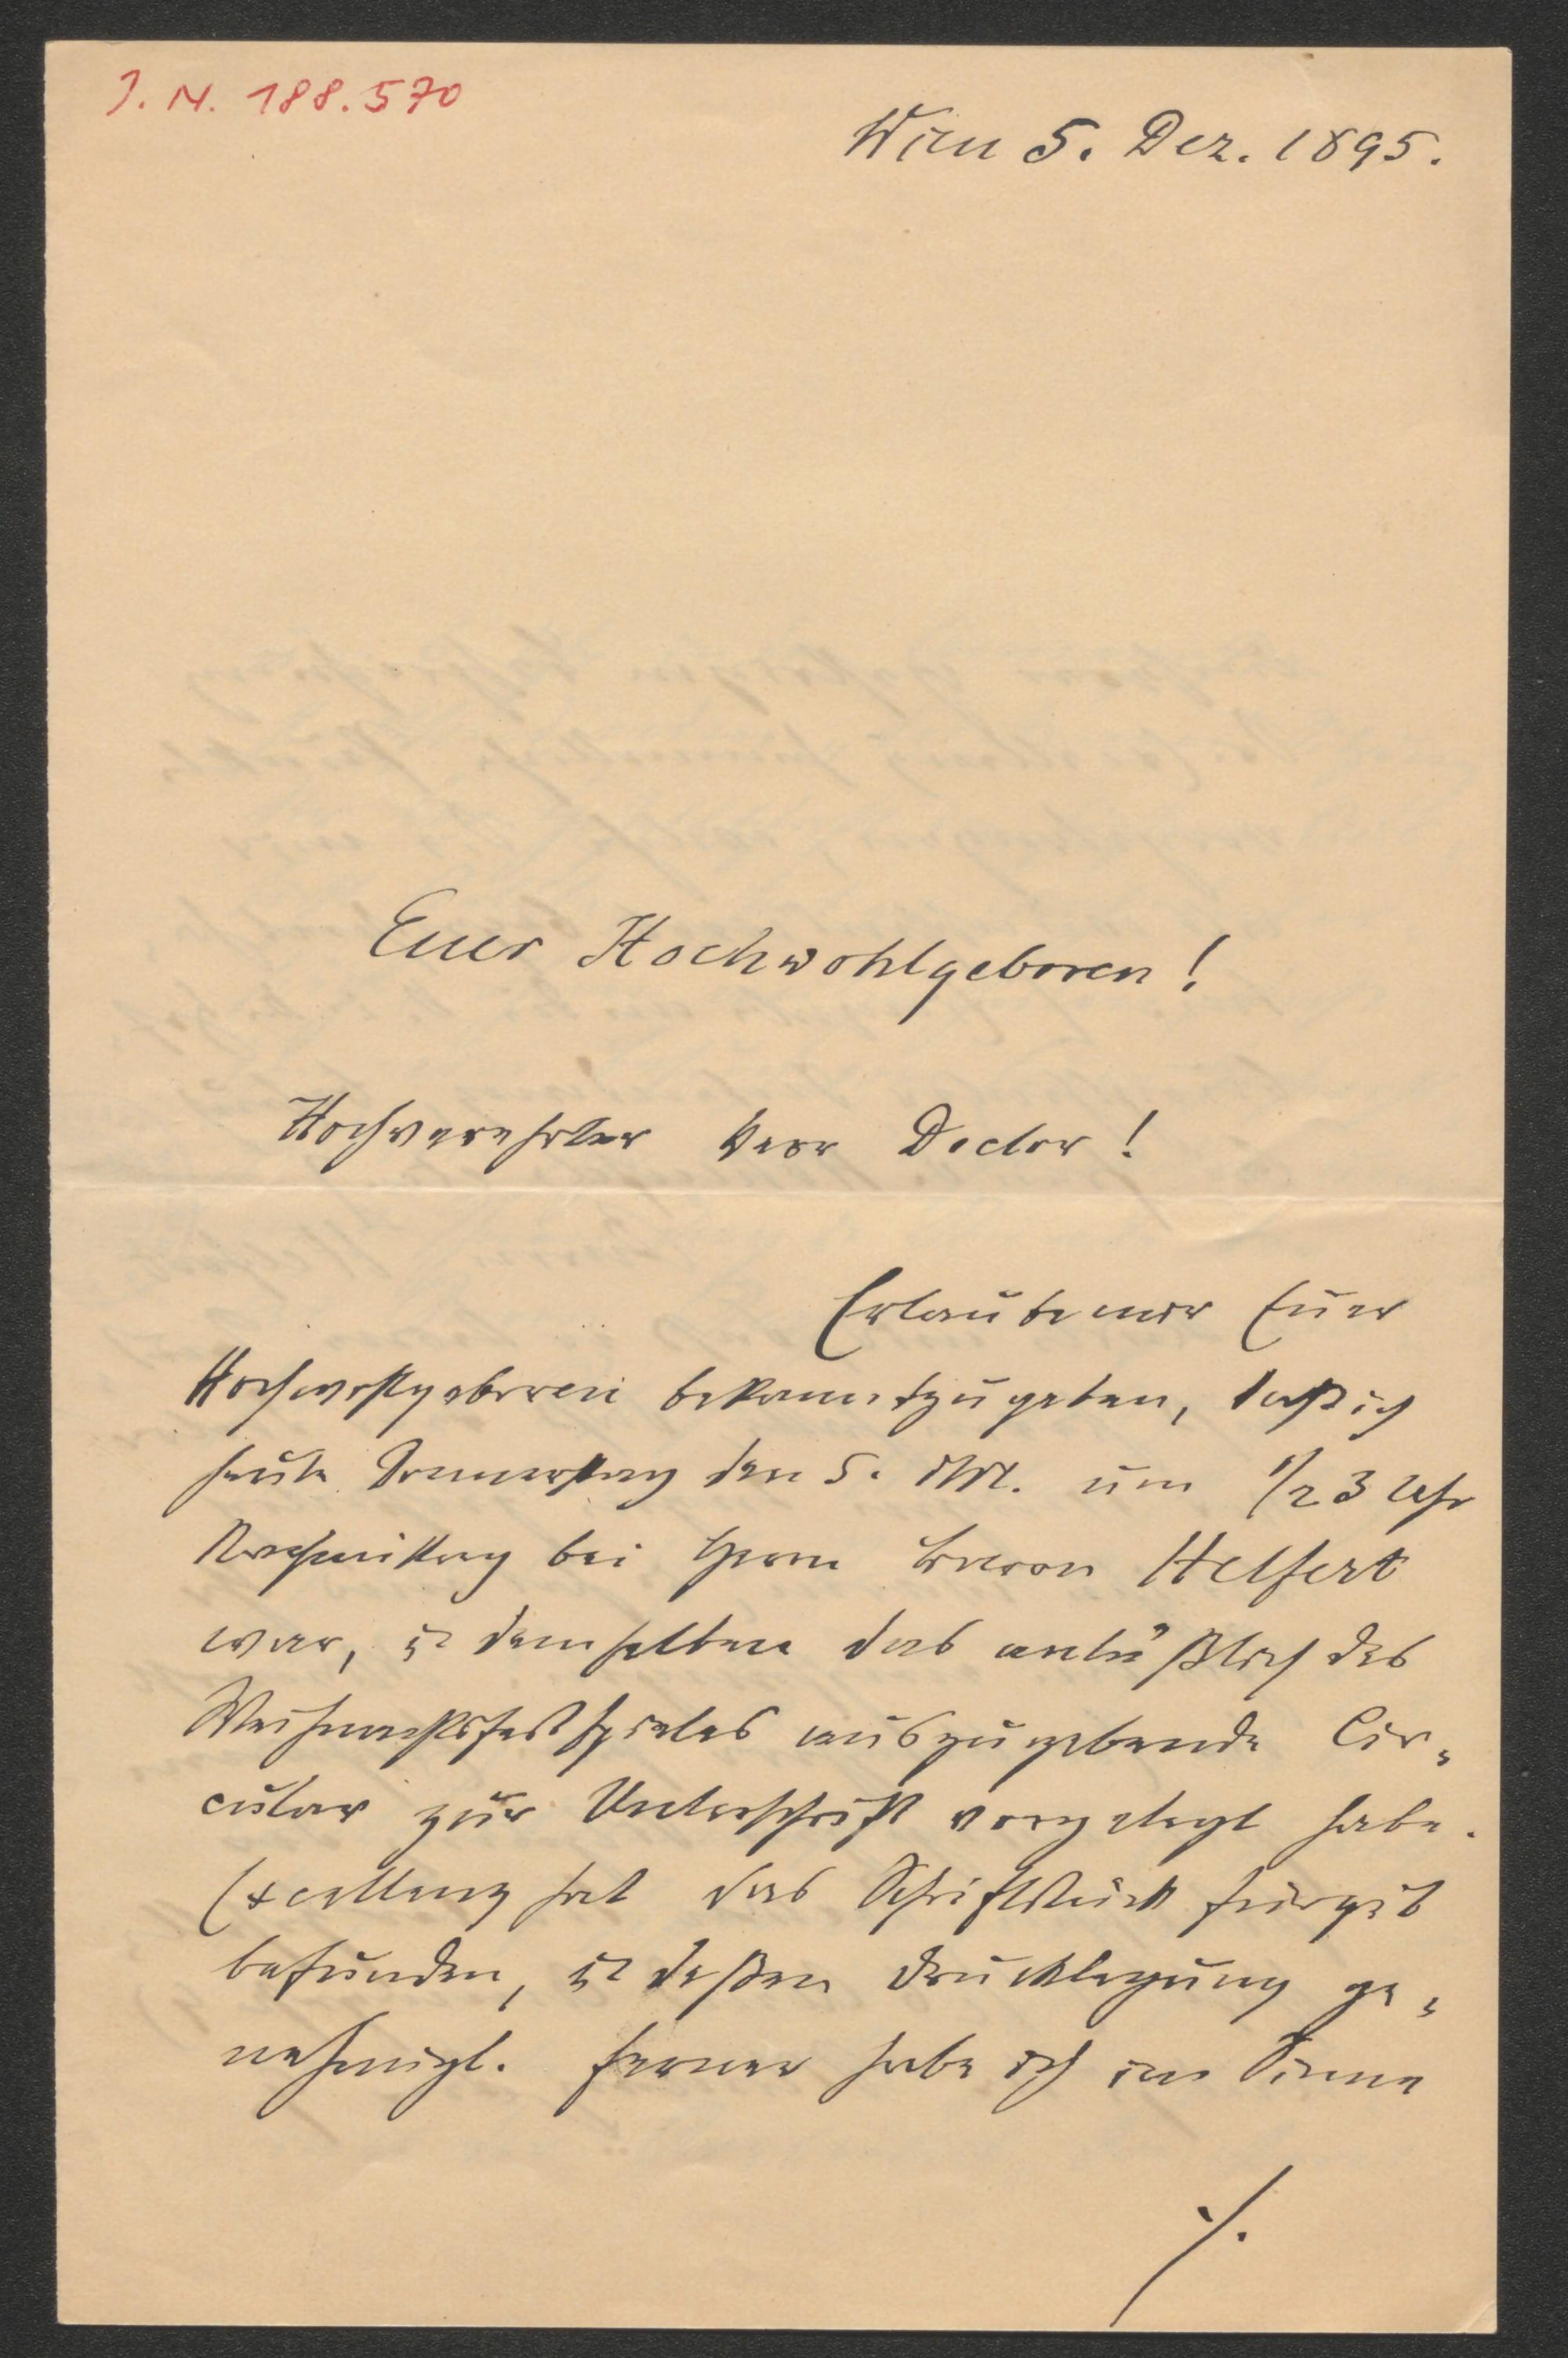 J. N. 188.570
Wien 5. Dez. 1895.
Euer Hochwohlgeboren!
Hochverehrter Herr Doctor!
Erlaube mir Euer
Hochwohlgeboren bekanntzugeben, daß ich
heute Donnerstag den 5. um 1/2 3 Uhr
Nachmittag bei Herrn Baron Helfert
war, u demselben das anläßlich des
Weihnachtsfestspieles auszugebende Cir=
cular zur Unterschrift vorgelegt habe.
Excellenz hat das Schriftstück für gut
befunden, u deßen Drucklegung ge=
nehmigt. Ferner habe ich im Sinne
./.